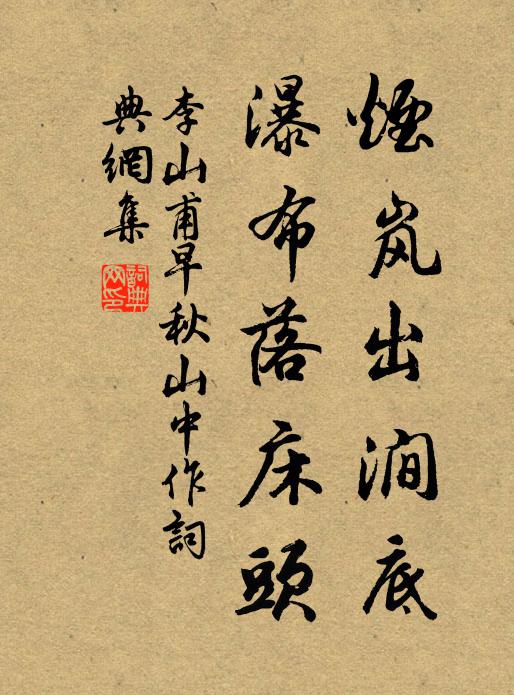 煙岚出澗底
瀑布落床頭
李山甫早秋山中作詞
典網集
詞典网印